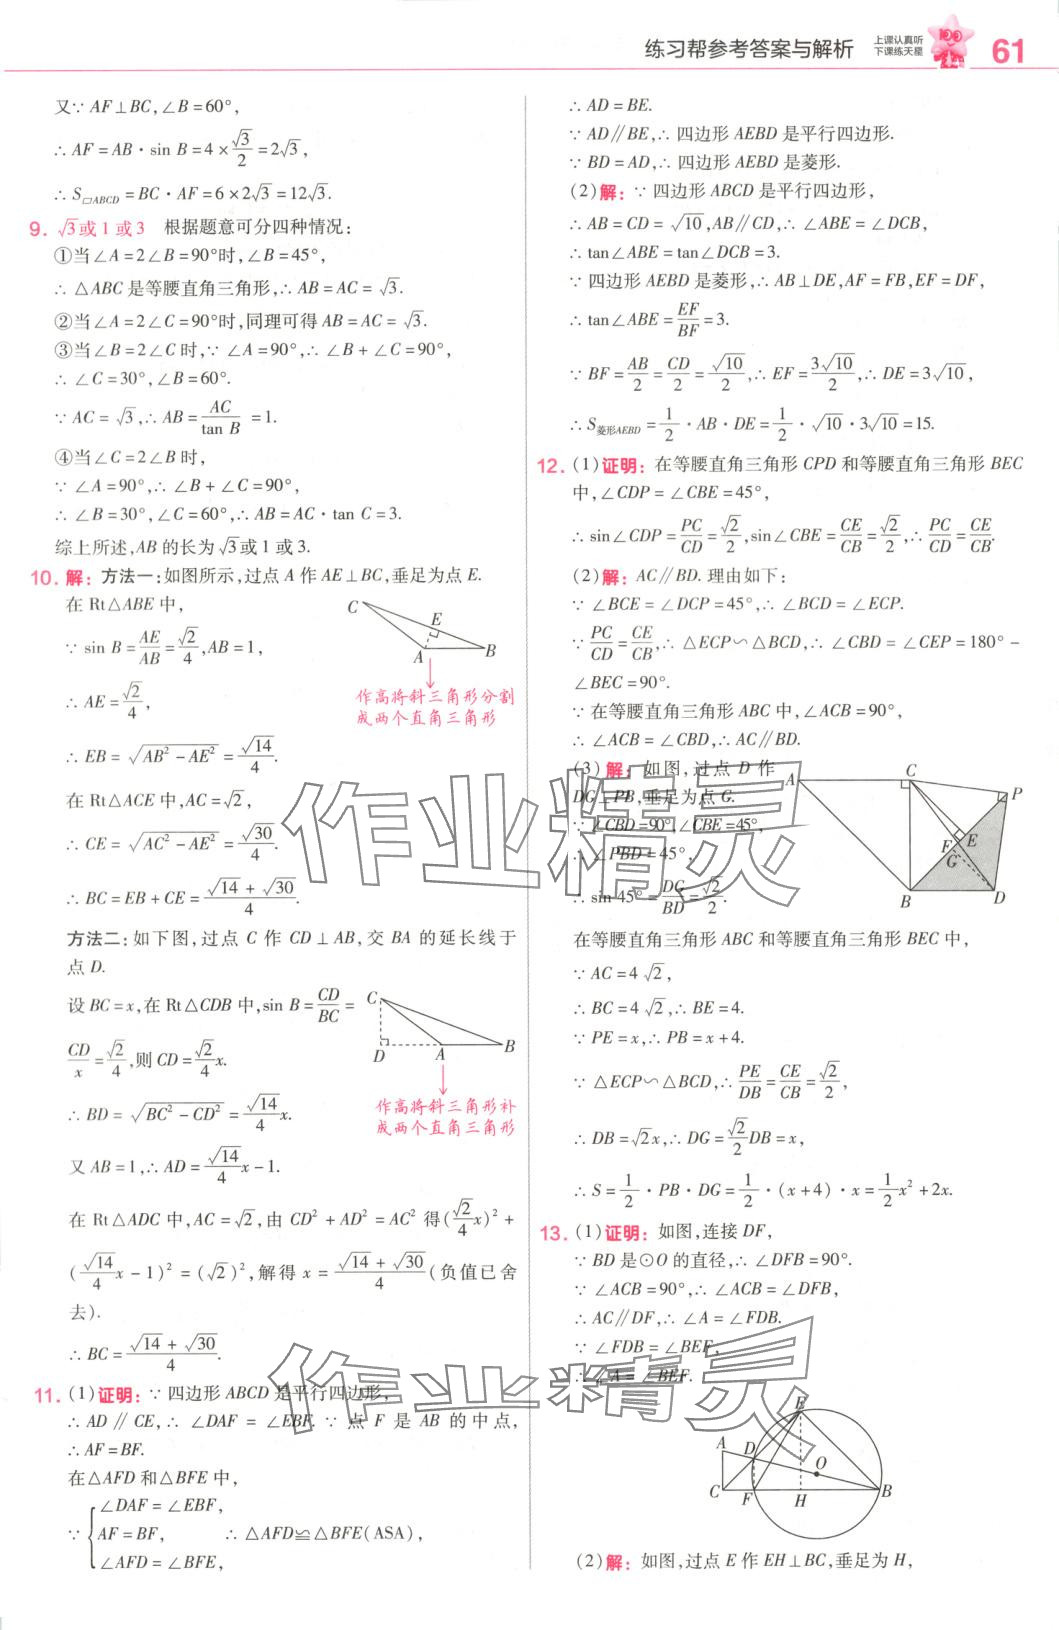 练习帮参考答案与解析
上课认真听
下课练天星
61
又∵ AF⊥BC,∠B=60°,
∴ AF=AB·sin B=4×√3/2=2√3,
∴ S▱ABCD=BC·AF=6×2√3=12√3.
9. √3或1或3 根据题意可分四种情况:
①当∠A=2∠B=90°时,∠B=45°,
∴ △ABC是等腰直角三角形,∴ AB=AC=√3.
②当∠A=2∠C=90°时,同理可得AB=AC=√3.
③当∠B=2∠C时,∵ ∠A=90°,∴ ∠B+∠C=90°,
∴ ∠C=30°,∠B=60°.
∵ AC=√3,∴ AB=AC/tan B=1.
④当∠C=2∠B时,
∵ ∠A=90°,∴ ∠B+∠C=90°,
∴ ∠B=30°,∠C=60°,∴ AB=AC·tan C=3.
综上所述,AB的长为√3或1或3.
10. 解: 方法一:如图所示,过点A作AE⊥BC,垂足为点E.
在Rt△ABE中,
∵ sin B=AE/AB=√2/4,AB=1,
∴ AE=√2/4,
∴ EB=√(AB²-AE²)=√14/4.
在Rt△ACE中,AC=√2,
∴ CE=√(AC²-AE²)=√30/4.
∴ BC=EB+CE=(√14+√30)/4.
C
E
A
B
作高将斜三角形分割
成两个直角三角形
方法二:如下图,过点C作CD⊥AB,交BA的延长线于
点D.
设BC=x,在Rt△CDB中,sin B=CD/BC=
CD/x=√2/4,则CD=√2/4x.
∴ BD=√(BC²-CD²)=√14/4x.
又AB=1,∴ AD=√14/4x-1.
C
D
A
B
作高将斜三角形补
成两个直角三角形
在Rt△ADC中,AC=√2,由CD²+AD²=AC²得(√2/4x)²+
(√14/4x-1)²=(√2)²,解得x=(√14+√30)/4(负值已舍
去).
∴ BC=(√14+√30)/4.
11. (1)证明:∵ 四边形ABCD是平行四边形,
∴ AD∥CE,∴ ∠DAF=∠EBF.∵ 点F是AB的中点,
∴ AF=BF.
在△AFD和△BFE中,
∠DAF=∠EBF,
∵ AF=BF, ∴ △AFD≌△BFE(ASA),
∠AFD=∠BFE,
∴ AD=BE.
∵ AD∥BE,∴ 四边形AEBD是平行四边形.
∵ BD=AD,∴ 四边形AEBD是菱形.
(2)解:∵ 四边形ABCD是平行四边形,
∴ AB=CD=√10,AB∥CD,∴ ∠ABE=∠DCB,
∴ tan∠ABE=tan∠DCB=3.
∵ 四边形AEBD是菱形,∴ AB⊥DE,AF=FB,EF=DF,
∴ tan∠ABE=EF/BF=3.
∵ BF=AB/2=CD/2=√10/2,∴ EF=3√10/2,∴ DE=3√10,
∴ S菱形AEBD=1/2·AB·DE=1/2·√10·3√10=15.
12. (1)证明:在等腰直角三角形CPD和等腰直角三角形BEC
中,∠CDP=∠CBE=45°,
∴ sin∠CDP=PC/CD=√2/2,sin∠CBE=CE/CB=√2/2,∴ PC/CD=CE/CB.
(2)解:AC∥BD.理由如下:
∵ ∠BCE=∠DCP=45°,∴ ∠BCD=∠ECP.
∵ PC/CD=CE/CB,∴ △ECP∽△BCD,∴ ∠CBD=∠CEP=180°-
∠BEC=90°.
∵ 在等腰直角三角形ABC中,∠ACB=90°,
∴ ∠ACB=∠CBD,∴ AC∥BD.
(3)解:如图,过点D作
DG⊥PB,垂足为点G.
∵ ∠CBD=90°,∠CBE=45°,
∴ ∠PBD=45°,
∴ sin 45°=DG/BD=√2/2.
A
C
P
F
E
G
B
D
在等腰直角三角形ABC和等腰直角三角形BEC中,
∵ AC=4√2,
∴ BC=4√2,∴ BE=4.
∵ PE=x,∴ PB=x+4.
∵ △ECP∽△BCD,∴ PE/DB=CE/CB=√2/2,
∴ DB=√2x,∴ DG=√2/2DB=x,
∴ S=1/2·PB·DG=1/2·(x+4)·x=1/2x²+2x.
13. (1)证明:如图,连接DF,
∵ BD是⊙O的直径,∴ ∠DFB=90°.
∵ ∠ACB=90°,∴ ∠ACB=∠DFB,
∴ AC∥DF,∴ ∠A=∠FDB.
∵ ∠FDB=∠BEF,
∴ ∠A=∠BEF.
E
A
D
O
C
F
H
B
(2)解:如图,过点E作EH⊥BC,垂足为H,
作业精灵
作业精灵